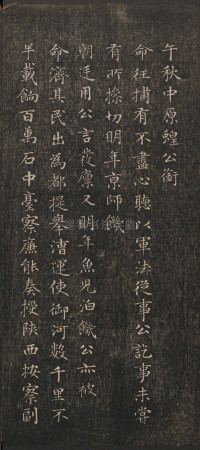 午秋中原蝗公銜
命往捕有不盡心聽以軍法從事公訖事未嘗
有所操切明年京師饑
朝廷用公言發廩又明年魚兒泊饑公亦被
命濟其民出為都提舉漕運使御河數千里不
半載餉百萬石中臺察廉能奏授陝西按察副